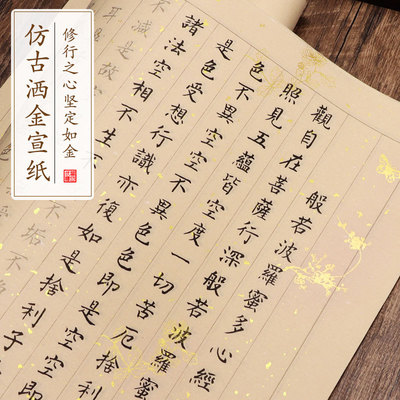 修行之心坚定如金
仿古洒金宣纸
般若波羅蜜多心經
觀自在菩薩行深般若波羅蜜
照見五蘊皆空度一切苦厄捨利
色不異空空不異色色即是空空即
是色受想行識亦復如是捨利子
諸法空相不生不